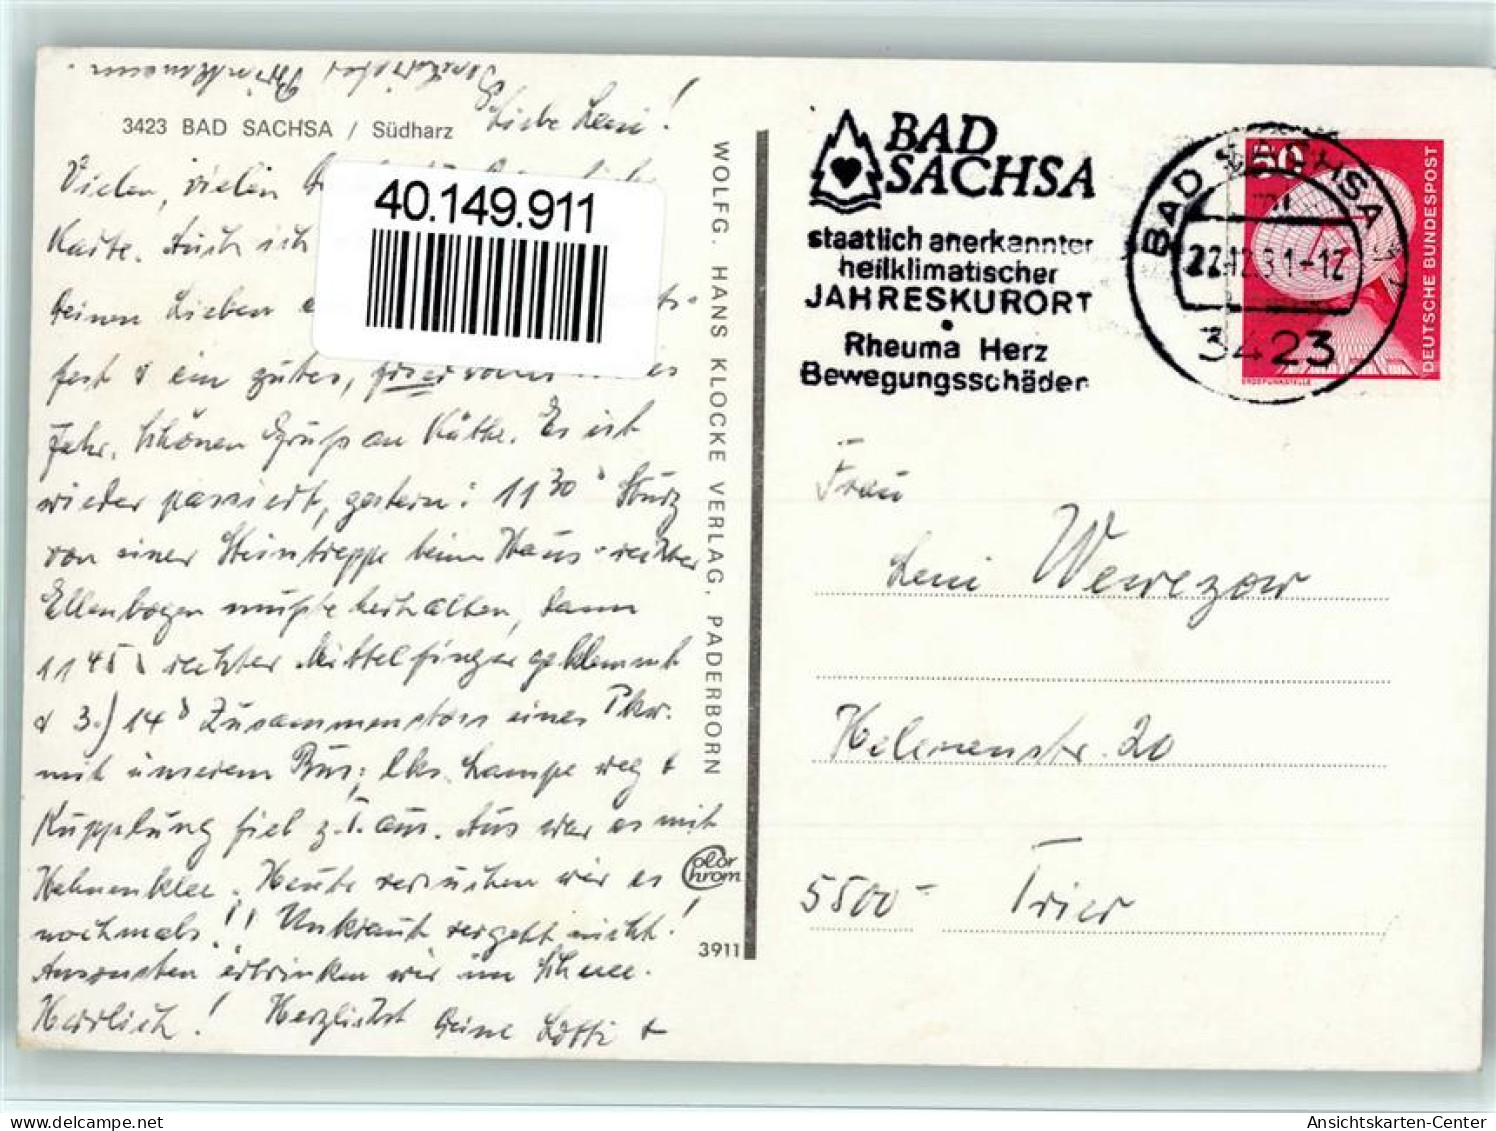 3423 BAD SACHSA / Südharz
Liebe Leni!
Vielen, vielen
Karte. Auch ich
deinen Lieben
fest & ein gutes,
Jahr. Schönen Gruß an Käthe. Es ist
wieder passiert, gestern: 11 30 Sturz
von einer Steintreppe beim Haus - rechter
Ellenbogen mußte herhalten, dann
11 45 rechter Mittelfinger geklemmt
& 3.) 14 Zusammenstoss eines Pkw.
mit unserem Bus; lks. Lampe weg &
Kupplung fiel z.T. aus. Aus war es mit
Hahnenklee. Heute versuchen wir es
nochmals!! Unkraut vergeht nicht!
Ansonsten ertrinken wir im Schnee.
Herrlich! Herzlichst Deine Lotti &
WOLFG. HANS KLOCKE VERLAG, PADERBORN
Color
Chrom
3911
40.149.911
BAD
SACHSA
staatlich anerkannter
heilklimatischer
JAHRESKURORT
Rheuma Herz
Bewegungsschäden
BAD SACHSA 1
22.12.81-12
3423
50
DEUTSCHE BUNDESPOST
ERDEFUNKSTELLE
Frau
Leni Wewezow
Helenenstr. 20
5500 - Trier
www.delcampe.net
Ansichtskarten-Center